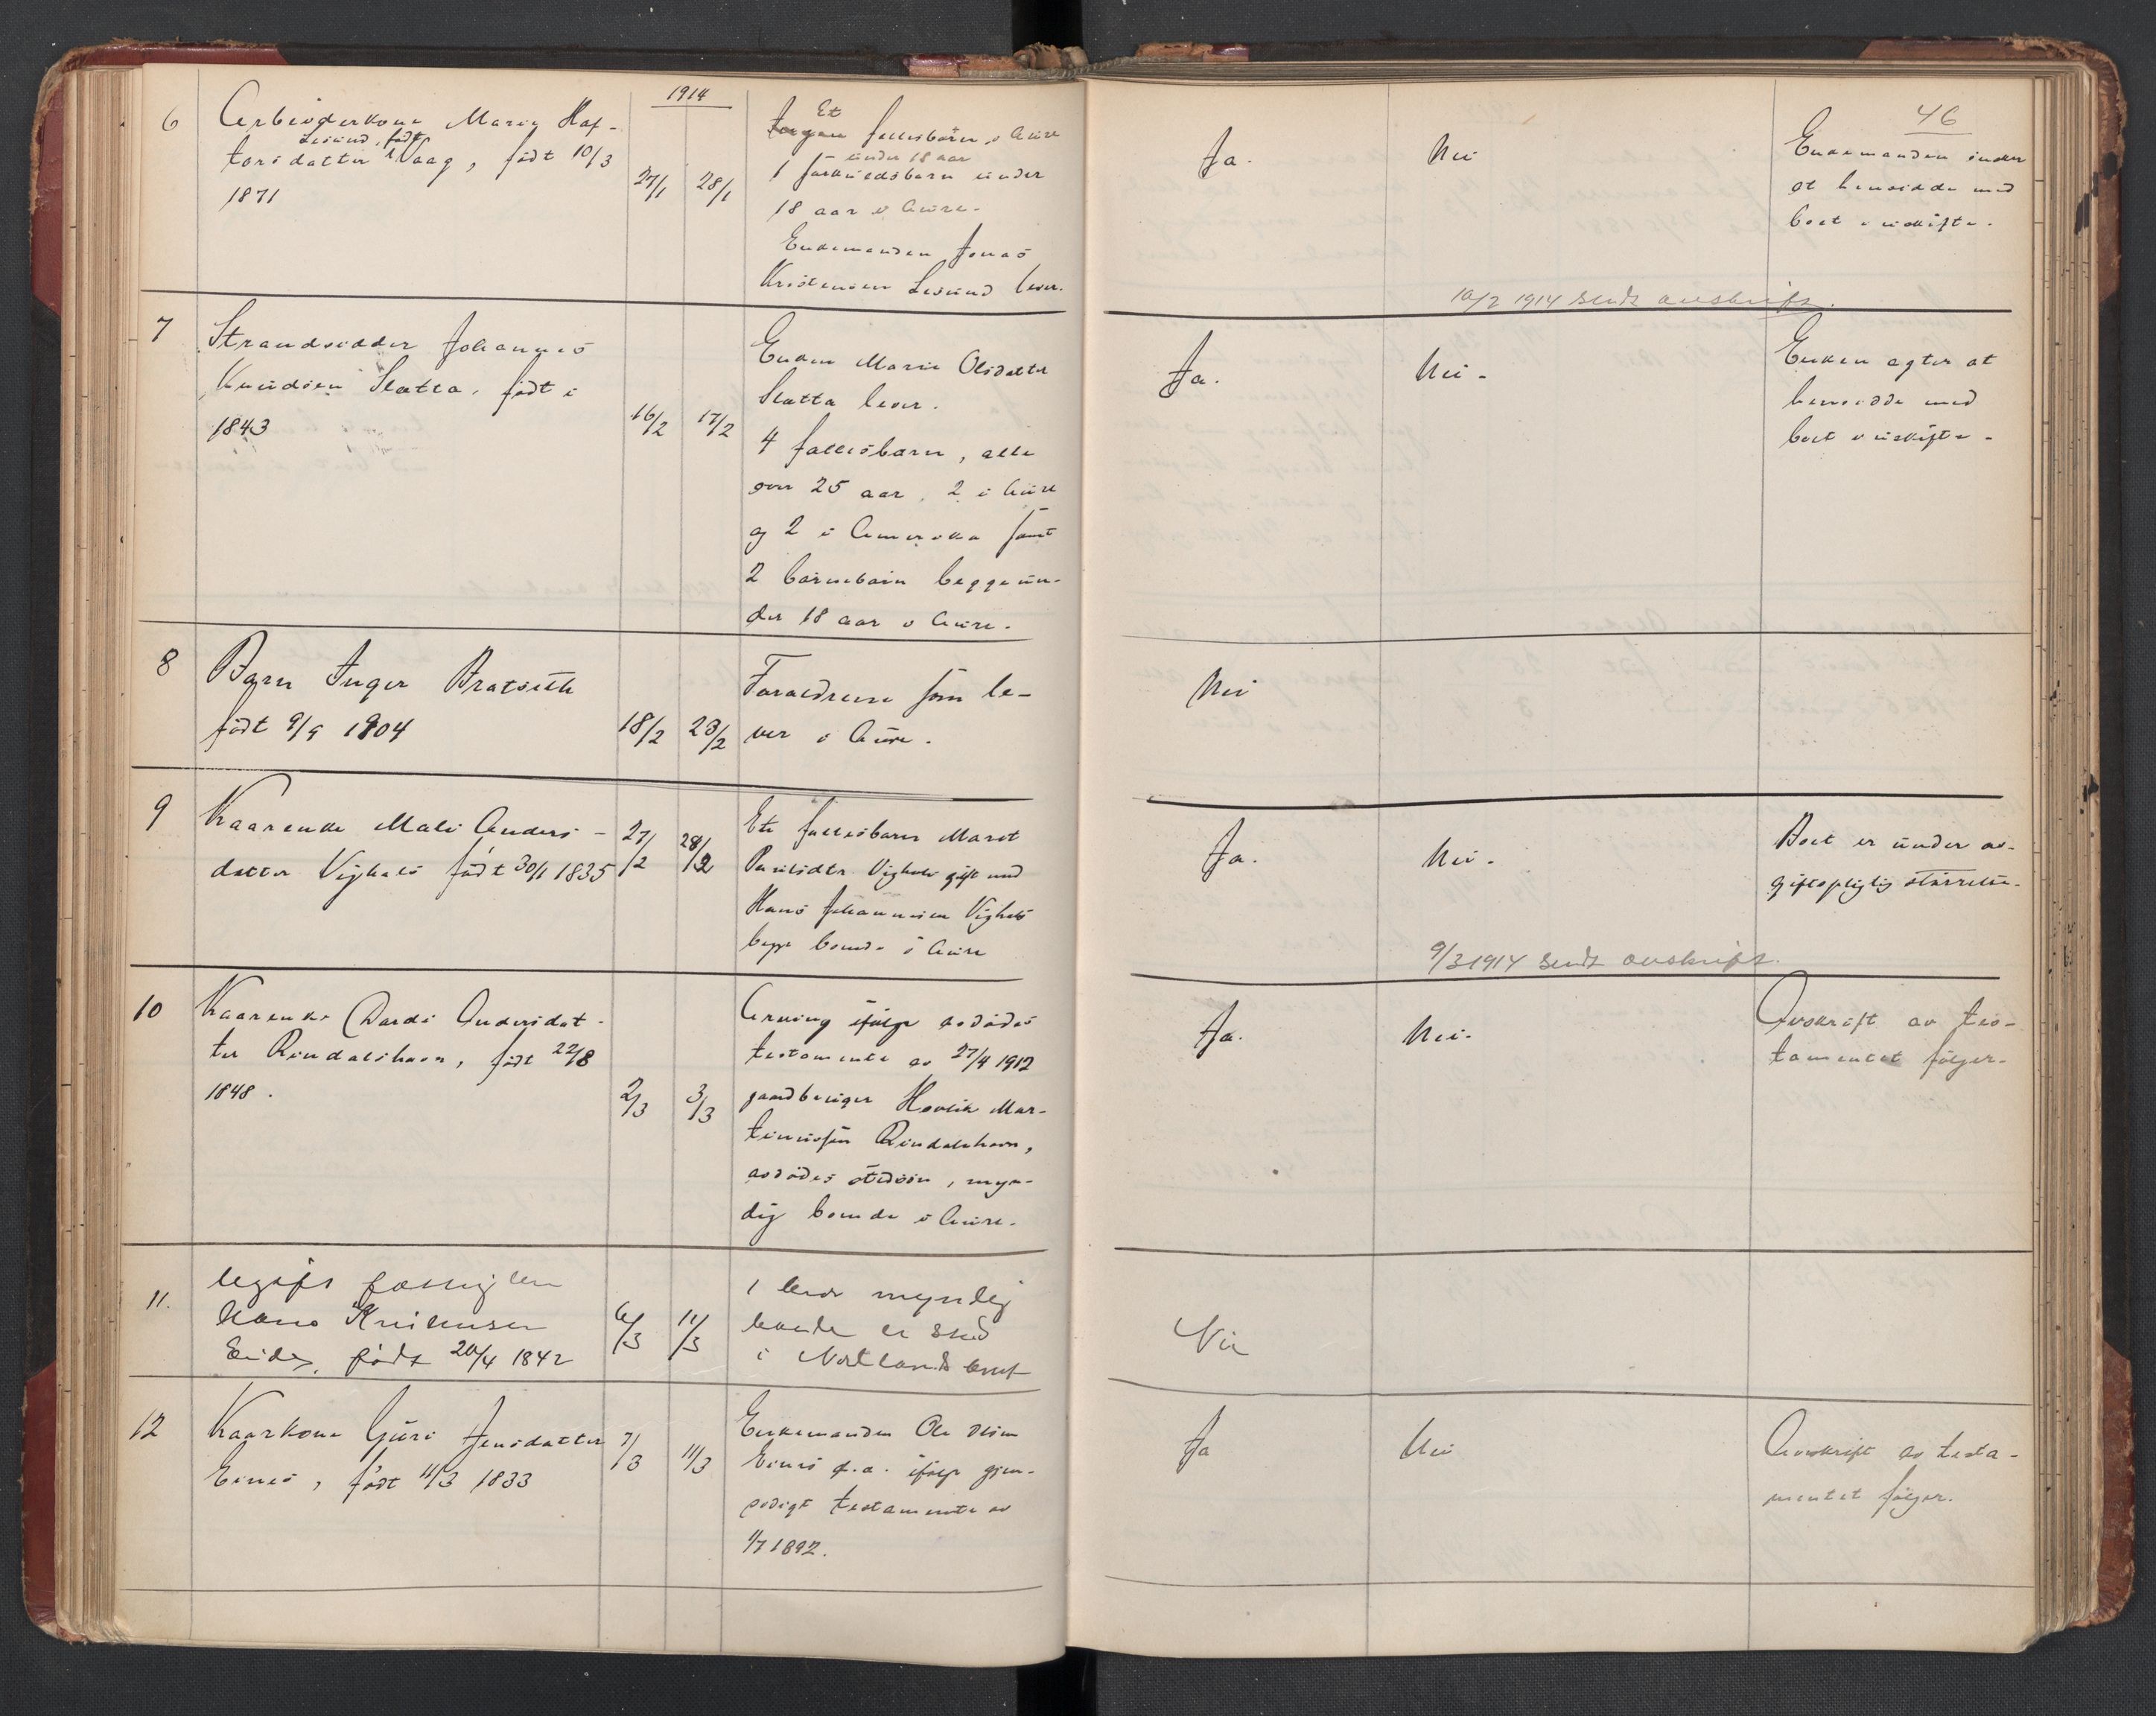 1914
46
6 Arbeiderkone Maren Haf-
Lesund, født
torsdatter Vaag, født 10/3
1871
27/1 28/1
Et
fællesbarn i Aure
under 18 aar
1 særkuldsbarn under
18 aar i Aure.
Enkemanden Jonas
Kristensen Lesund lever.
Ja. Nei
Enkemanden ønsker
at hensidde med
boet i uskifte.
10/2 1914 sendt avskrift.
7 Strandsidder Johannes
Knudsen Slatta, født i
1843
16/2 17/2
Enken Marie Olsdatter
Slatta lever.
4 fællesbarn, alle
over 25 aar, 2 i Aure
og 2 i Amerika samt
2 barnebarn begge un-
der 18 aar i Aure.
Ja. Nei.
Enken agter at
hensidde med
boet i uskifte.
8 Barn Inger Bratseth
født 9/9 1904
18/2 23/2
Forældrene som le-
ver i Aure.
Nei
9 Kaarenke Mali Anders-
datter Vighals født 30/1 1835
27/2 28/2
Et fællesbarn Maret
Paulsdtr. Vighals gift med
Hans Johannesen Vighals
begge boende i Aure
Ja. Nei.
Boet er under av-
giftspligtig størrelse.
9/3 1914 sendt avskrift.
10 Kaarenke Bardi Andersdat-
ter Rindalshavn, født 22/8
1848.
2/3 3/3
Arving ifølge avdødes
testamente av 27/4 1912
gaardbruger Hovik Mar-
tinussen Rindalshavn,
avdødes stedsøn, myn-
dig boende i Aure.
Ja. Nei.
Avskrift av tes-
tamentet følger.
11. Ugift fattiglem
Hans Knudsen
Eide, født 20/4 1842
6/3 11/3
1 bror myndig
boende et sted
i Nordlands amt
Nei
12 Kaarkone Guri Jensdatter
Eines, født 11/3 1833
7/3 11/3
Enkemanden Ole Olsen
Eines f.a. ifølge gjen-
sidigt testamente av
1/7 1892.
Ja Nei
Avskrift av testa-
mentet følger.